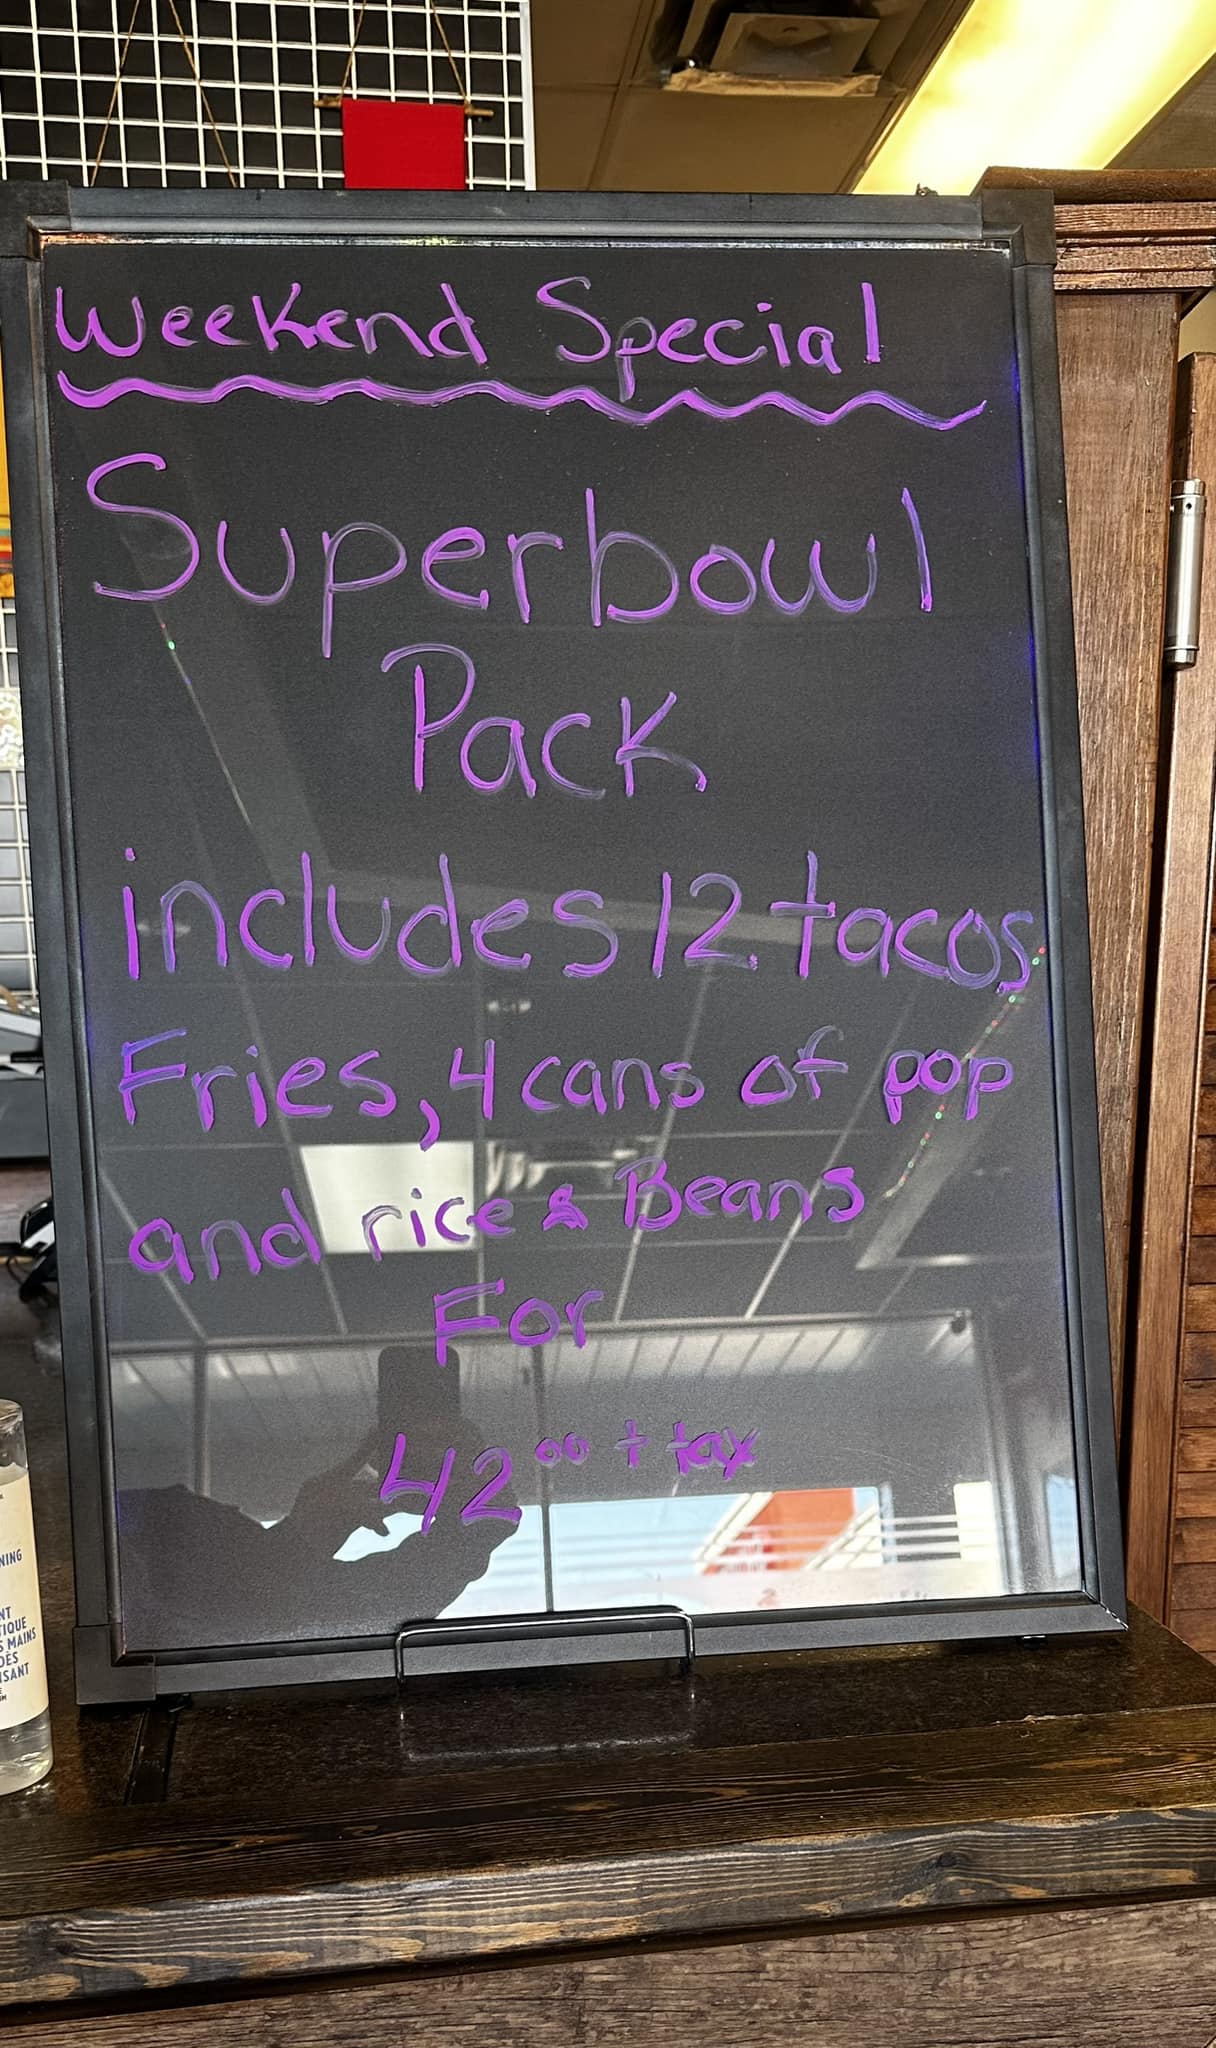 Weekend Special
Superbowl
Pack
includes 12 tacos
Fries, 4 cans of pop
and rice & Beans
For
42⁰⁰ + tax
NING
NT
TIQUE
S MAINS
DÈS
ISANT